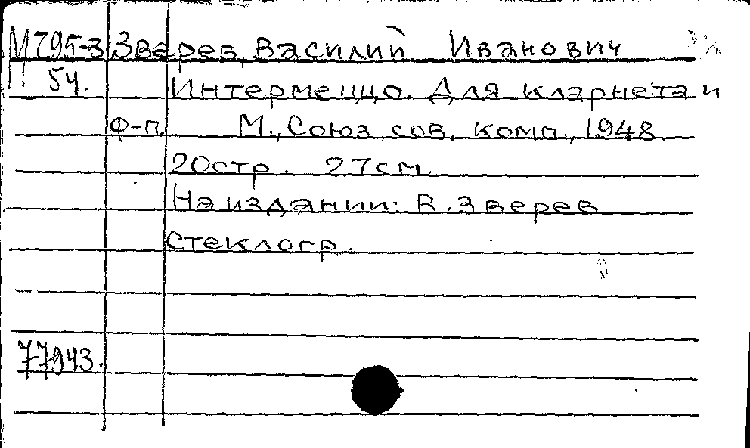 М795-3 Зверев, Василий Иванович
54. Интермеццо. Для кларнета и
ф-п. М., Союз сов. комп., 1948.
20стр. 27см.
На издании: В. Зверев
Стеклогр.
77943.